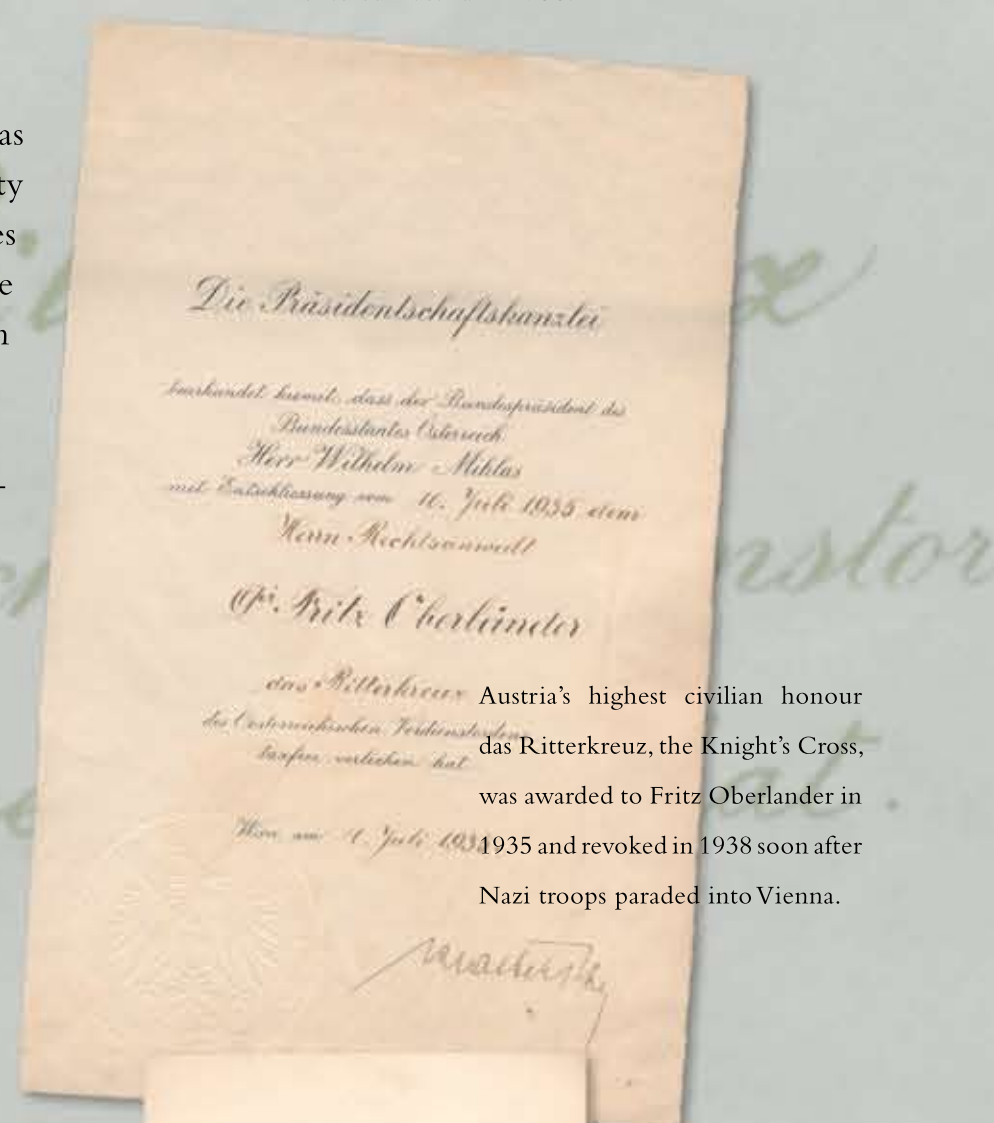 as
ty
es
e
n
-
Die Präsidentschaftskanzlei
beurkundet hiemit, dass der Bundespräsident des
Bundesstaates Österreich
Herr Wilhelm Miklas
mit Entschliessung vom Juli 1935 dem
Herrn Rechtsanwalt
Dr. Fritz Oberländer
das Ritterkreuz
des Österreichischen Verdienstordens
taxfrei verliehen hat.
Wien, am Juli 1935
Austria's highest civilian honour
das Ritterkreuz, the Knight's Cross,
was awarded to Fritz Oberlander in
1935 and revoked in 1938 soon after
Nazi troops paraded into Vienna.